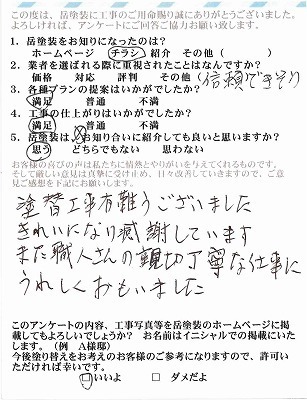 この度は、岳塗装に工事のご用命賜り誠にありがとうございました。
よろしければ、アンケートにご回答ご協力お願い致します。
1. 岳塗装をお知りになったのは？
ホームページ チラシ 紹介 その他（ ）
2. 業者を選ばれる際に重視されたことはなんですか？
価格 対応 評判 その他（信頼できそう
3. 各種プランの提案はいかがでしたか？
満足 普通 不満
4. 工事の仕上がりはいかがでしたか？
満足 普通 不満
5. 岳塗装は、お知り合いに紹介しても良いと思いますか？
思う どちらでもない 思わない
お客様の喜びの声は私たちに情熱とやりがいを与えてくれるものです。
そして厳しい意見は真摯に受け止め、日々改善していきますので、ご意
見ご感想を下記にお願いします。
塗替工事有難うございました
きれいになり感謝しています
また職人さんの親切丁寧な仕事に
うれしくおもいました
このアンケートの内容、工事写真等を岳塗装のホームページに掲
載してもよろしいでしょうか？ お名前はイニシャルでの掲載にいた
します。（例 A様邸）
今後塗り替えをお考えのお客様のご参考になりますので、許可い
ただければ幸いです。
いいよ ダメだよ